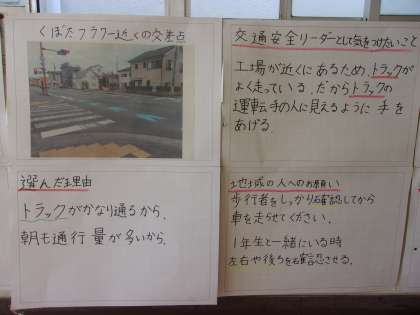 くぼたフラワー近くの交差点
選んだ理由
トラックがかなり通るから、
朝も通行量が多いから。
交通安全リーダーとして気をつけたいこと
工場が近くにあるため、トラックが
よく走っている。だからトラックの
運転手の人に見えるように手を
あげる
地域の人へのお願い
歩行者をしっかり確認してから
車を走らせてください。
1年生と一緒にいる時
左右や後ろを確認させる。